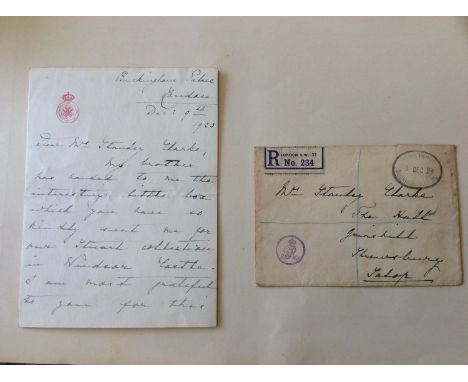 Buckingham Palace
London
Decr 9th
1923
Dear Mr Stanley Clarke,
My brother
has handed to me the
interesting little box
which you have so
kindly sent me for
our Stuart collection
in Windsor Castle.
I am most grateful
to you for this
R LONDON S.W. 37
No. 234
DEC 23
Mr Stanley Clarke
The Hall
Shrewsbury
Salop